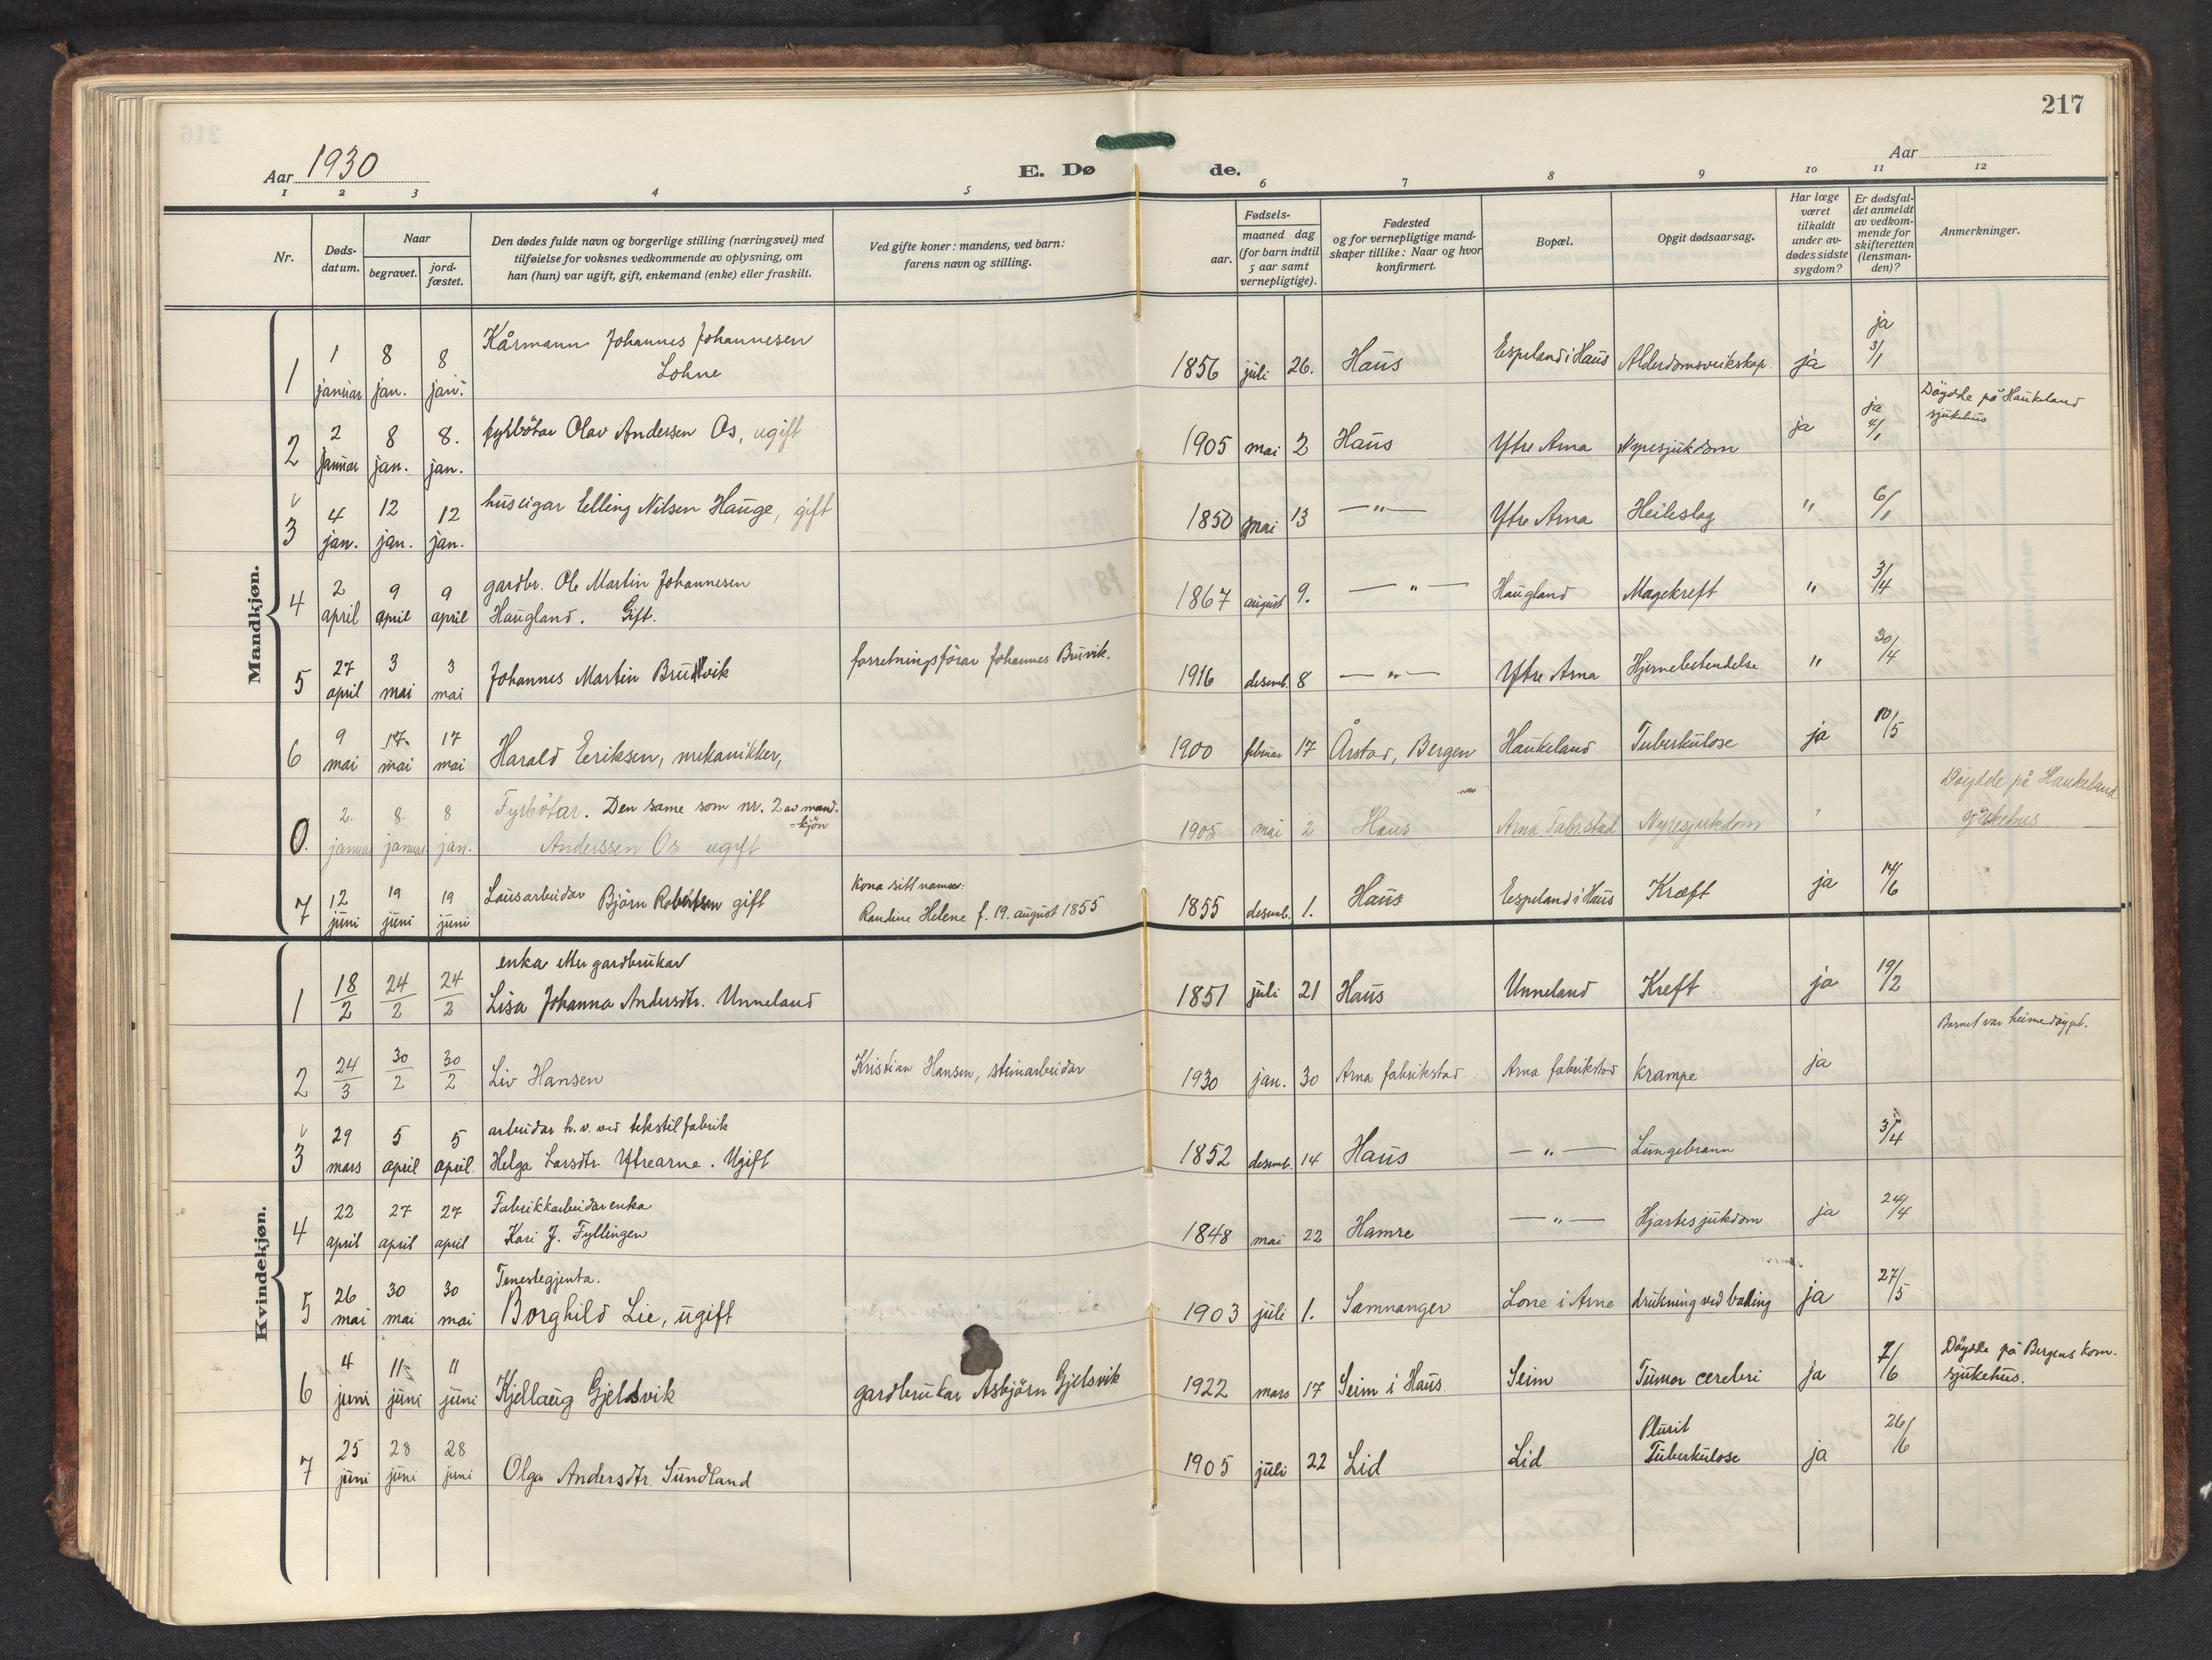 217
Aar 1930
E. Dø
de.
Aar
1 2 3 4 5 6 7 8 9 10 11 12
Nr.
Døds-
datum.
Naar
begravet.
jord-
fæstet.
Den dødes fulde navn og borgerlige stilling (næringsvei) med
tilføielse for voksnes vedkommende av oplysning, om
han (hun) var ugift, gift, enkemand (enke) eller fraskilt.
Ved gifte koner: mandens, ved barn:
farens navn og stilling.
Fødsels-
aar.
maaned dag
(for barn indtil
5 aar samt
vernepligtige).
Fødested
og for vernepligtige mand-
skaper tillike: Naar og hvor
konfirmert.
Bopæl.
Opgit dødsaarsag.
Har læge
været
tilkaldt
under av-
dødes sidste
sygdom?
Er dødsfal-
det anmeldt
av vedkom-
mende for
skifteretten
(lensman-
den)?
Anmerkninger.
Mandkjøn.
1 1 januar 8 jan. 8 jan. Kårmann Johannes Johannesen
Lohne 1856 juli 26. Haus Espeland i Haus Alderdomsveikskap. ja ja 3/1
2 2 januar 8 jan. 8. jan. fyrbötar Olav Andersen Os, ugift 1905 mai 2 Haus Ytre Arna Nyresjukdom ja ja 4/1 Döydde på Haukeland
sjukehus
3 4 jan. 12 jan. 12 jan. huseigar Elling Nilsen Hauge, gift 1850 mai 13 — " — Ytre Arna Heileslag " 6/1
4 2 april 9 april 9 april gardbr. Ole Martin Johannesen
Haugland. Gift. 1867 august 9. — " — Haugland Magekreft " 3/4
5 27 april 3 mai 3 mai Johannes Martin Bruvik forretningsförar Johannes Bruvik. 1916 desemb. 8 — " — Ytre Arna Hjernebetendelse " 30/4
6 9 mai 17 mai 17 mai Harald Eeriksen, mekanikker, 1900 februar 17 Årstad, Bergen Haukeland Tuberkulose ja 10/5
0. 2. januar 8. januar 8 jan. Fyrbötar. Den same som nr. 2 av mand-
-kjön
Anderssen Os ugift 1905 mai 2 Haus Arna Fabr.stad Nyresjukdom " Döydde på Haukeland
sjukehus
7 12 juni 19 juni 19 juni Lausarbeidar Björn Robertsen gift Kona sitt namn:
Randine Helene f. 19. august 1855 1855 desemb. 1. Haus Espeland i Haus Kræft ja 14/6
Kvindekjøn.
1 18/2 24/2 24/2 enka etter gardbrukar
Lisa Johanna Andersdtr. Unneland 1851 juli 21 Haus Unneland Kreft ja 19/2
2 24/3 30/2 30/2 Liv Hansen Kristian Hansen, steinarbeidar 1930 jan. 30 Arna fabrikstad Arna fabrikstad krampe ja Barnet var heimedöypt.
3 29 mars 5 april 5 april arbeidar h. v. ved tekstilfabrik
Helga Larsdtr. Ytrearne. Ugift 1852 desemb. 14 Haus — " — Lungebrann 3/4
4 22 april 27 april 27 april Fabrikkarbeidarenka
Kari J. Fyllingen 1848 mai 22 Hamre — " — Hjartesjukdom ja 24/4
5 26 mai 30 mai 30 mai Tenestegjenta.
Borghild Lie, ugift 1903 juli 1. Samnanger Lone i Arne drukning ved bading ja 27/5
6 4 juni 11 juni 11 juni Kjellaug Gjelsvik gardbrukar Asbjörn Gjelsvik 1922 mars 17 Seim i Haus Seim Tumor cerebri ja 7/6 Döydde på Bergens kom.
sjukehus.
7 25 juni 28 juni 28 juni Olga Andersdtr. Sundland 1905 juli 22 Lid Lid Plurit
Tuberkulose ja 26/6